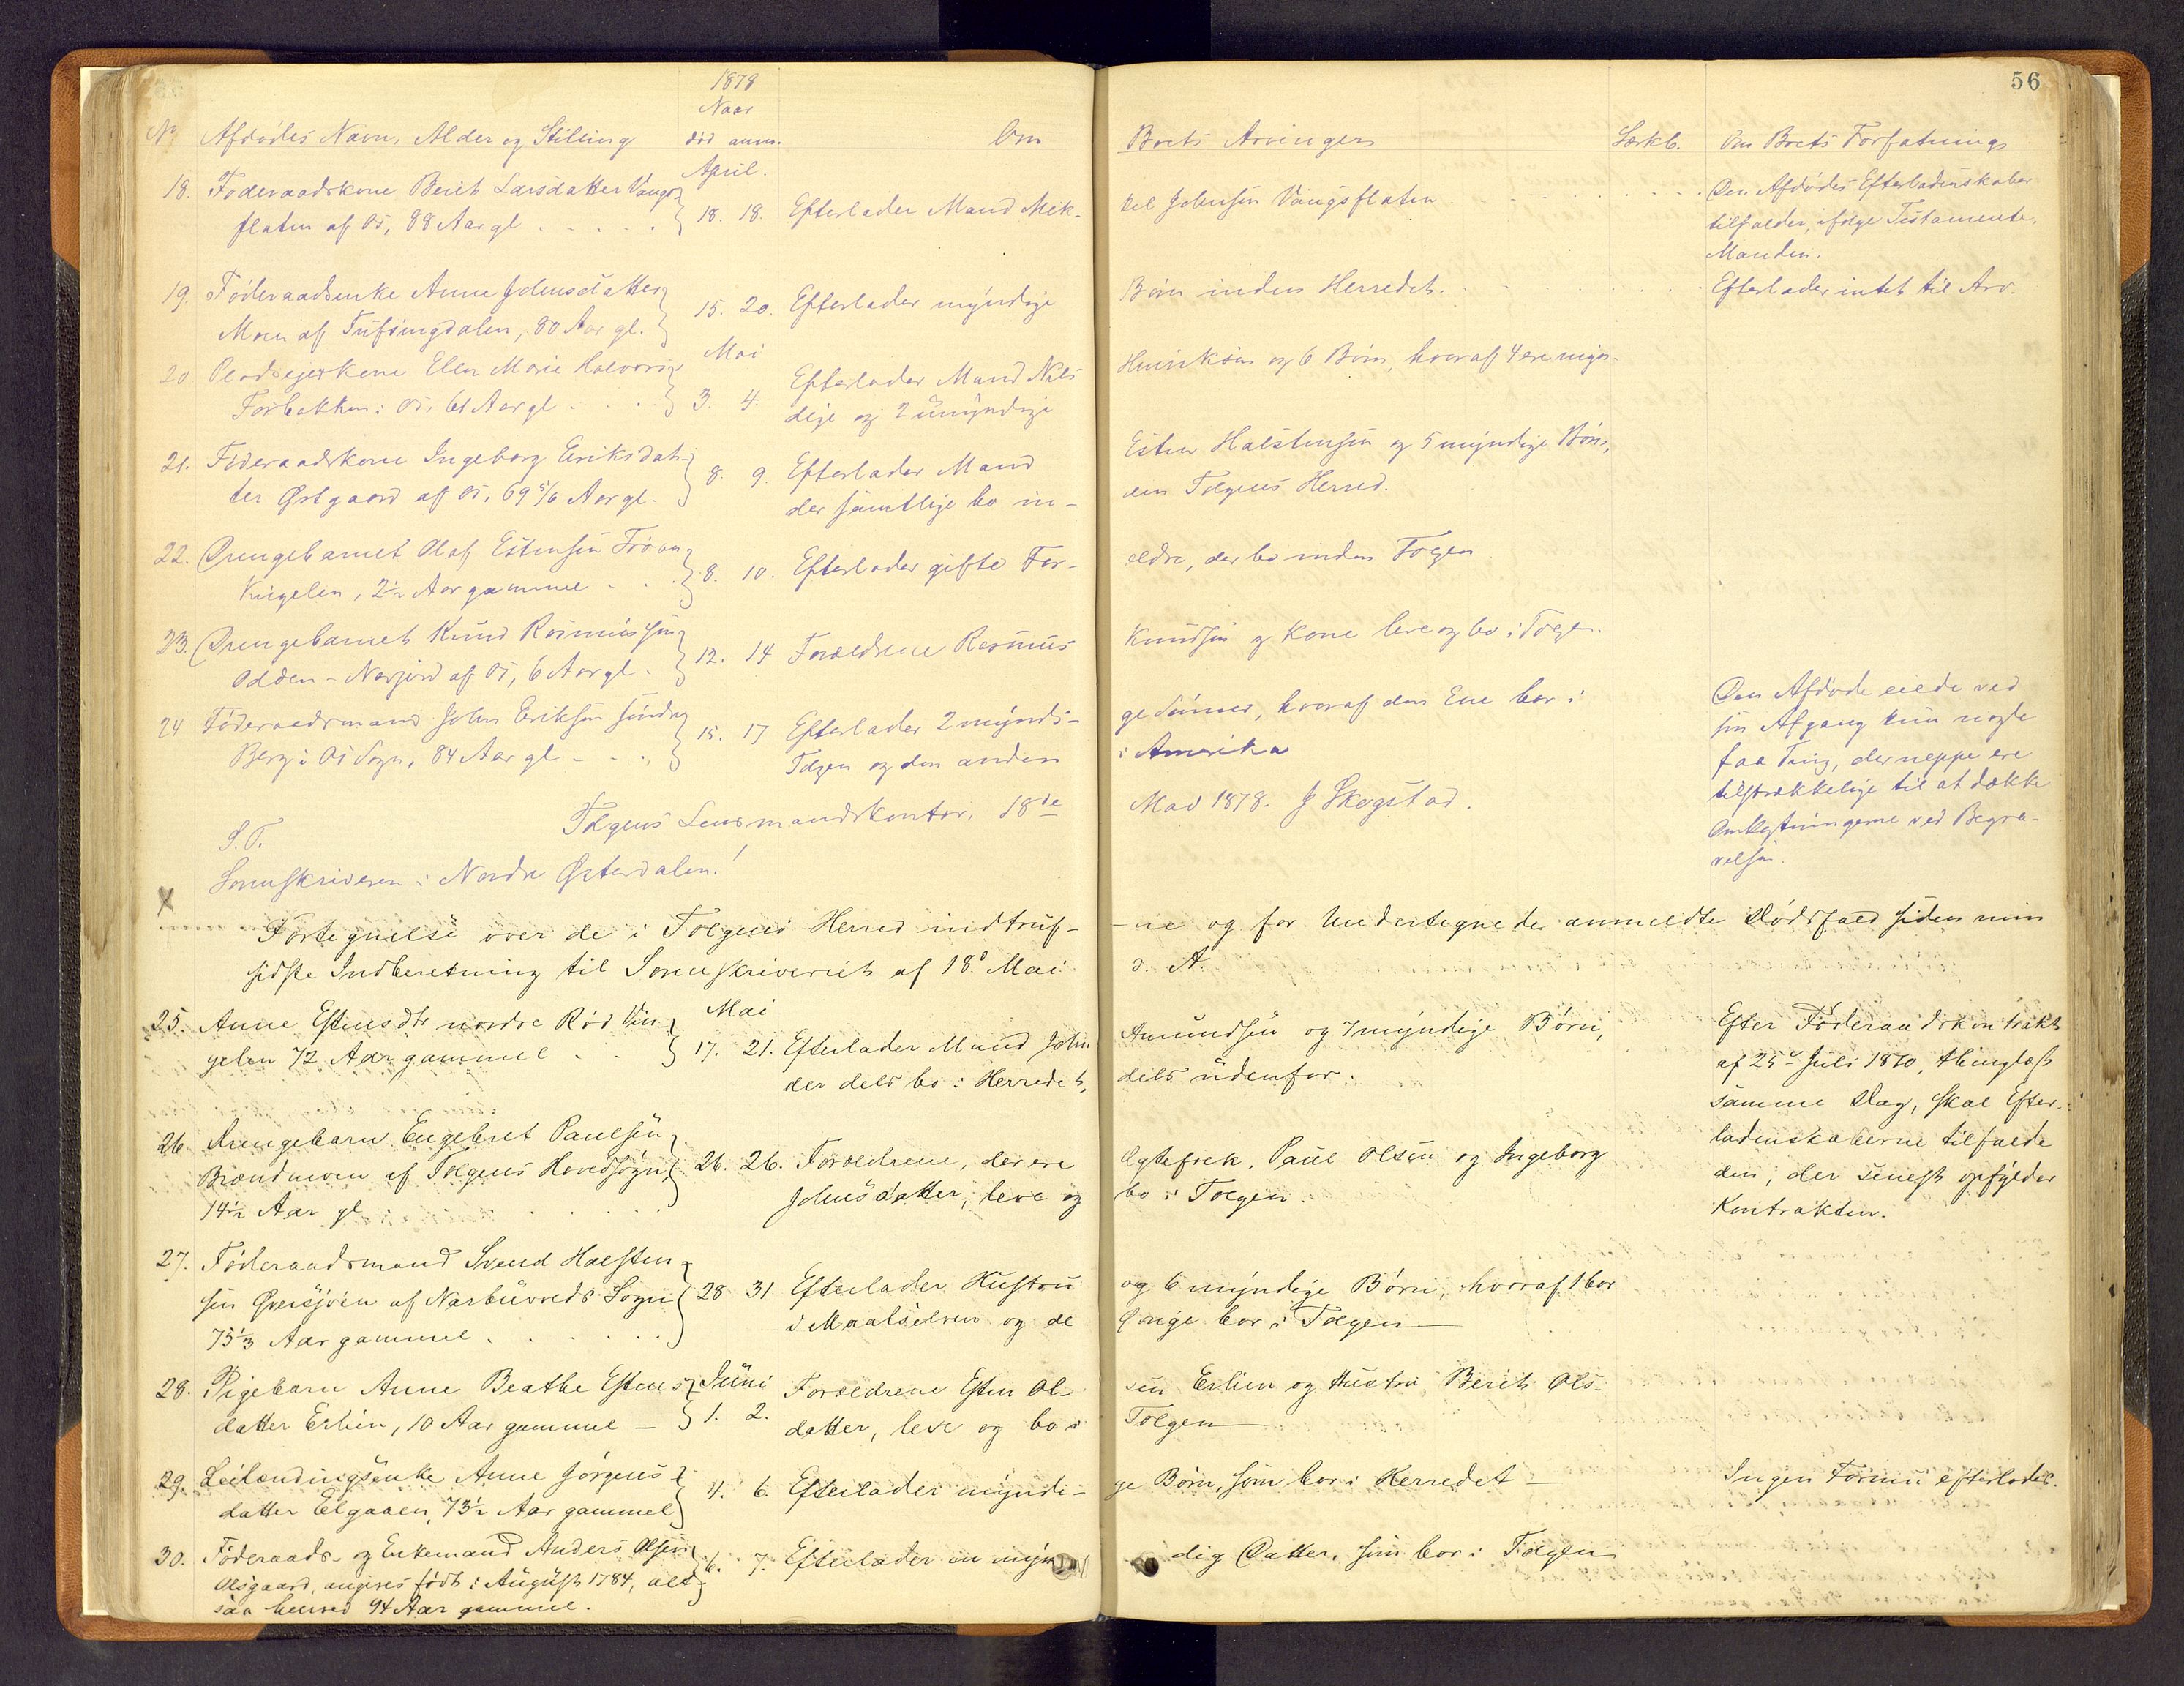 56
1878
Naar
No Afdødes Navn, Alder og Stilling død anm. Om Boets Arvinger Særkb. Om Boets Forfatning
April.
18. Føderaadskone Berit Larsdatter Vangs-
flaten af Os, 88 Aar gl 18. 18. Efterlader Mand Mik-
kel Johnsen Vangsflaten
Den Afdødes Efterladenskaber
tilfalder, ifølge Testamente,
Manden.
19. Føderaadsenke Anne Johnsdatter
Moen af Tufsingdalen, 80 Aar gl. 15. 20. Efterlader myndige
Børn inden Herredet.
Efterlader intet til Arv.
Mai
20 Pladsejerkone Ellen Marie Halvorsd
Forbakken i Os, 61 Aar gl 3. 4. Efterlader Mand Nils
Henriksen og 6 Børn, hvoraf 4 ere myn-
dige og 2 umyndige
21. Føderaadskone Ingeborg Eriksdat-
ter Østgaard af Os, 69 5/6 Aar gl. 8. 9. Efterlader Mand
Esten Halstensen og 5 myndige Børn,
der samtlige bo in-
den Tolgens Herred.
22. Drengebarnet Olaf Estensen Troan
Vingelen, 2 1/2 Aar gammel 8. 10. Efterlader gifte For-
ældre, der bo inden Tolgen
23. Drengebarnet Knud Rasmussen
Odden-Narjord af Os, 6 Aar gl. 12. 14 Forældrene Rasmus
Knudsen og Kone leve og bo i Tolgen.
24 Føderaadsmand John Eriksen søndre
Berg i Os Sogn, 84 Aar gl 15. 17 Efterlader 2 myndi-
ge Sønner, hvoraf den Ene bor i
Tolgen og den anden
i Amerika
Den Afdøde eiede ved
sin Afgang kun nogle
faa Ting, der neppe ere
tilstrækkelige til at dække
Omkostningerne ved Begra-
velsen.
Tolgens Lensmandskontor, 18de
Mai 1878. J Skogstad.
S. T.
Sorenskriveren i Nordre Østerdalen!
x
Fortegnelse over de i Tolgens Herred indtruf-
ne og for Undertegnede anmeldte Dødsfald siden min
sidste Indberetning til Sorenskriveriet af 18de Mai
d. A.
Mai
25. Anne Estensdtr nordre Rød Vin-
gelen 72 Aar gammel 17. 21. Efterlader Mand John
Amundsen og 7 myndige Børn,
der dels bo i Herredet,
dels udenfor.
Efter Føderaadskontrakt
af 25de Juli 1870, thinglæst
samme Dag, skal Efter-
ladenskaberne tilfalde
den, der senest opfylder
Kontrakten.
26. Drengebarn Engebret Paulsen
Brændmoen af Tolgens Hovedsogn, 26. 26. Forældrene, der ere
14 1/2 Aar gl
Ægtefolk, Paul Olsen og Ingeborg
Johnsdatter, leve og
bo i Tolgen
27. Føderaadsmand Svend Halsten-
sen Øversjøen af Narbuvoeds Sogn 28 31 Efterlader Hustru
75 1/3 Aar gammel
og 6 myndige Børn, hvoraf 1 bor
i Maalselven og de
Øvrige bor i Tolgen
28. Pigebarn Anne Beathe Estens-
datter Erlien, 10 Aar gammel Juni 1. 2. Forældrene Esten Ol-
sen Erlien og Hustru Berit Ols-
datter, leve og bo i
Tolgen
29. Leilændingsenke Anne Jørgens-
datter Elgaaen, 73 1/2 Aar gammel 4. 6. Efterlader myndi-
ge Børn, som bor i Herredet
Ingen Formue efterlades.
30. Føderaads- og Enkemand Anders Olsen
Olsgaard, angives født i August 1784, alt-
saa henved 94 Aar gammel. 6. 7. Efterlader en myn-
dig Datter, som bor i Tolgen